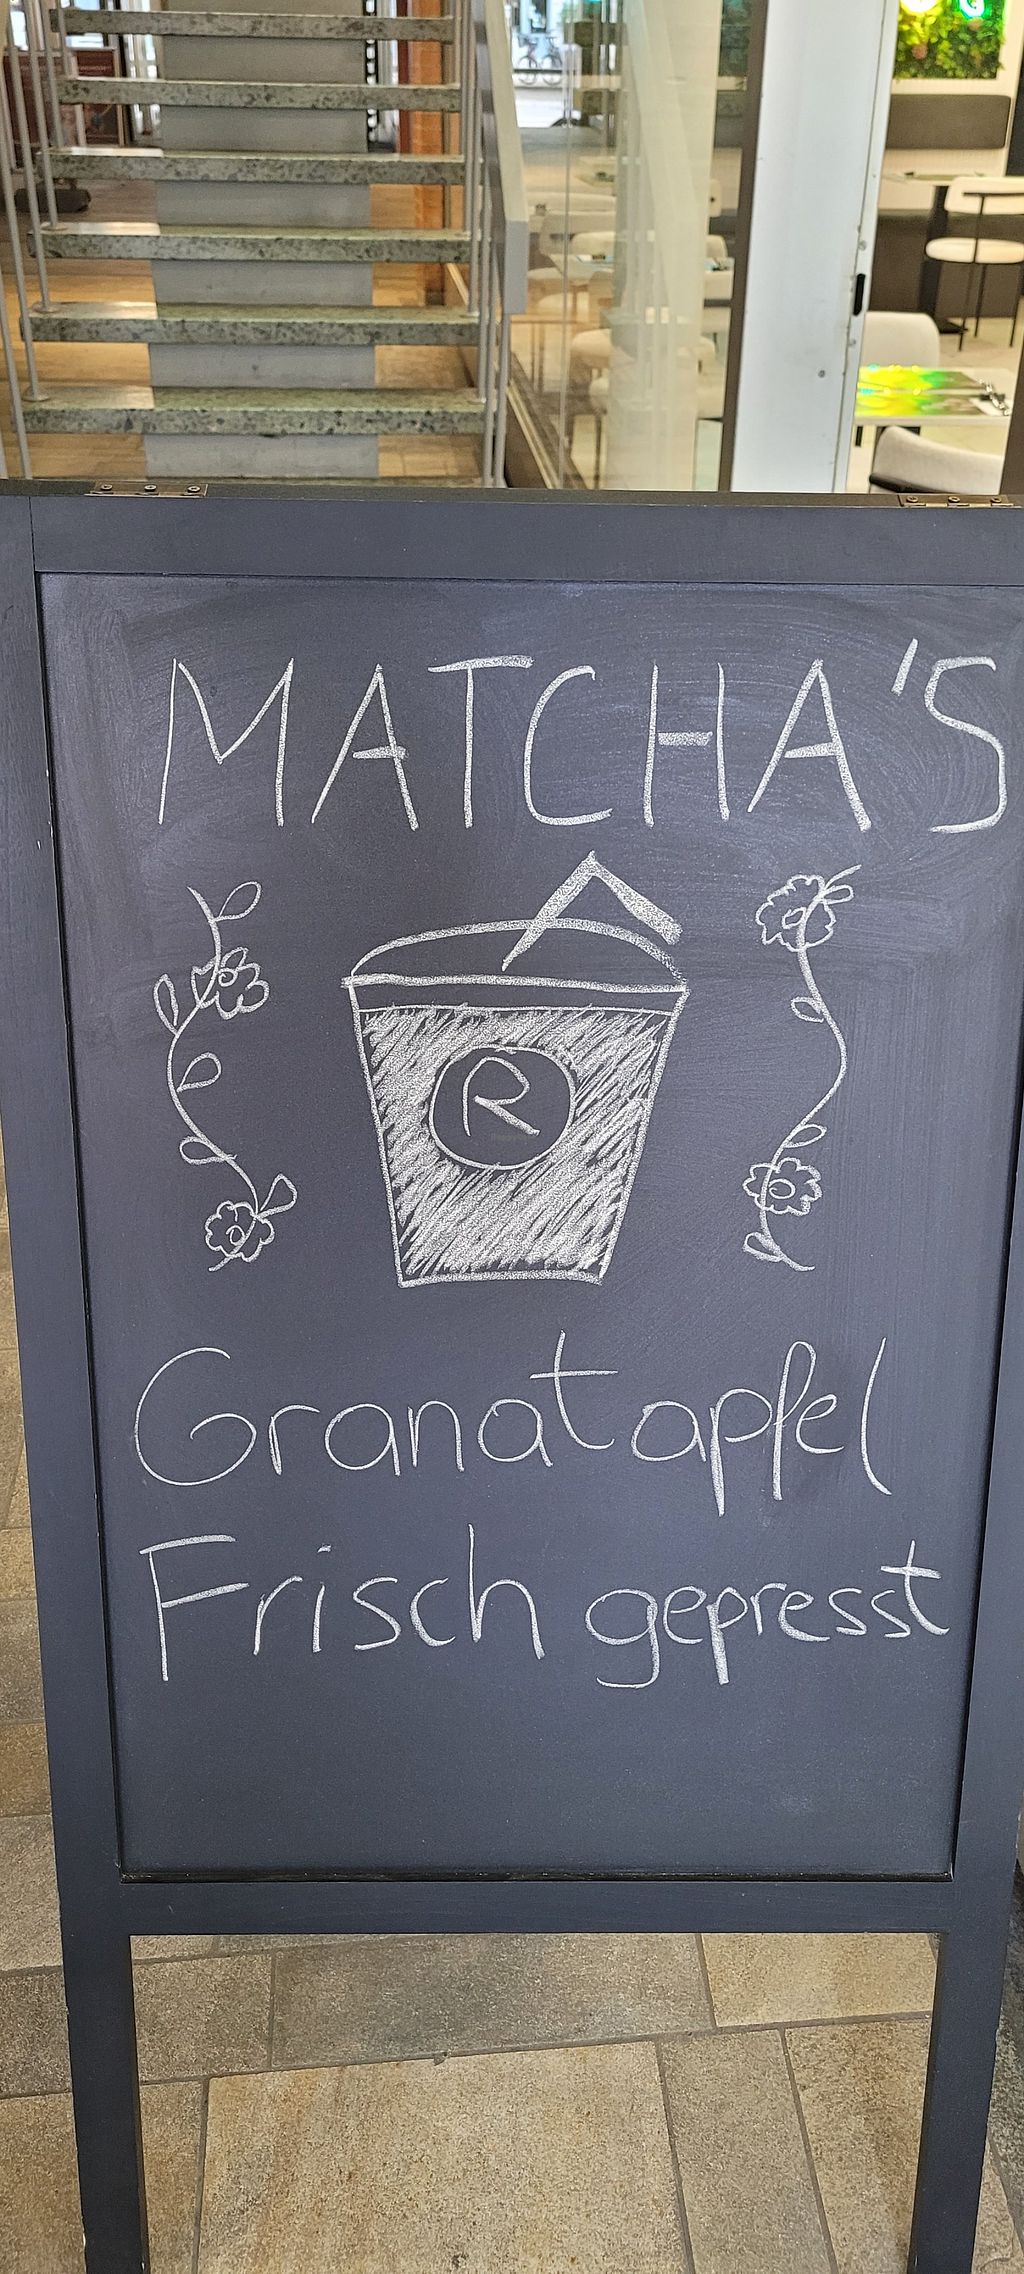 MATCHA'S
R
Granatapfel
Frisch gepresst